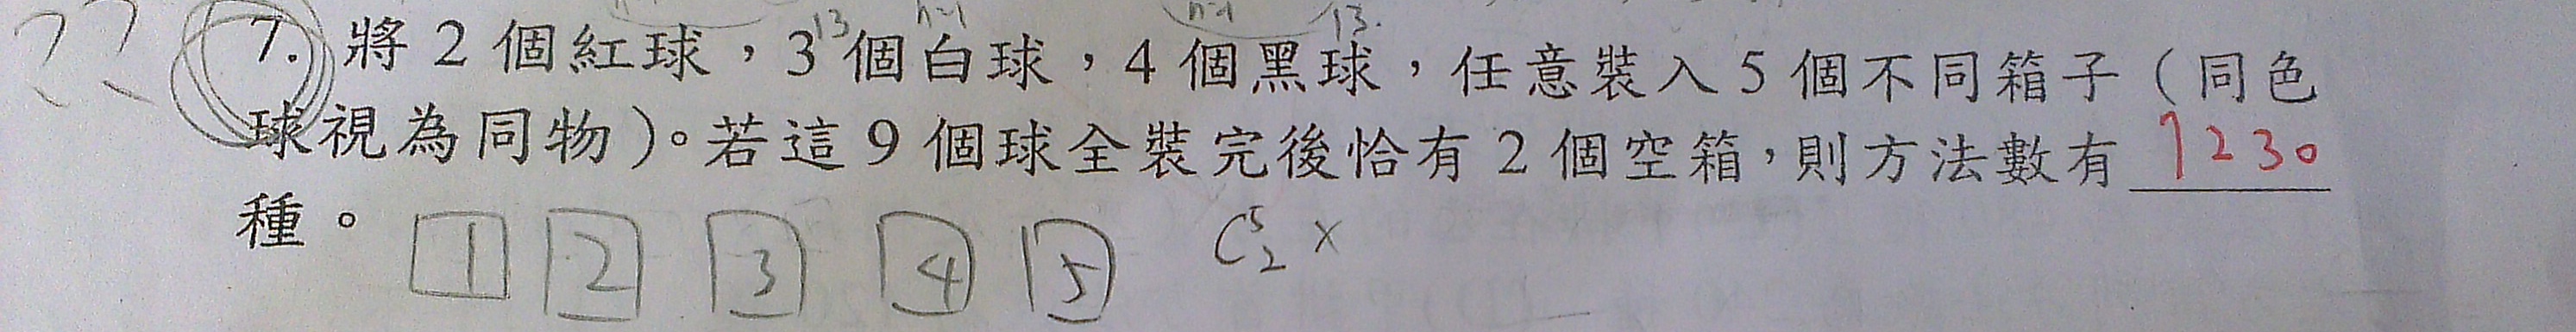 n-1 n-1
13 13.
?? 7. 將2個紅球，3個白球，4個黑球，任意裝入5個不同箱子（同色
球視為同物）。若這9個球全裝完後恰有2個空箱，則方法數有 7230
種。 1 2 3 4 5 C⁵₂ ×